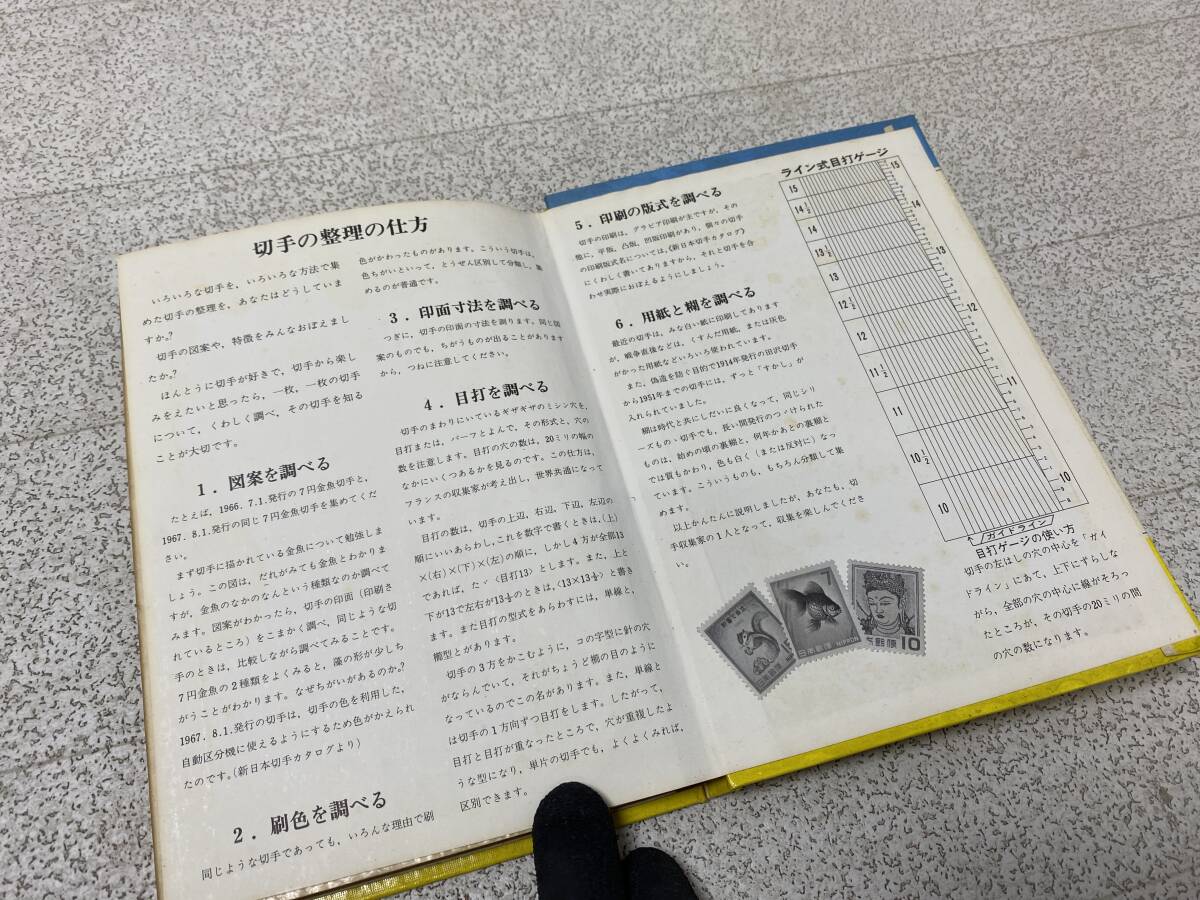 切手の整理の仕方
いろいろな切手を，いろいろな方法で集
めた切手の整理を，あなたはどうしていま
すか？
切手の図案や，特徴をみんなおぼえまし
たか？
ほんとうに切手が好きで，切手から楽し
みをえたいと思ったら，一枚，一枚の切手
について，くわしく調べ，その切手を知る
ことが大切です。
1．図案を調べる
たとえば，1966．7.1.発行の7円金魚切手と，
1967．8.1.発行の同じ7円金魚切手を集めてくだ
さい。
まず切手に描かれている金魚について勉強しま
しょう。この図は，だれがみても金魚とわかりま
すが，金魚のなかのなんという種類なのか調べて
みます。図案がわかったら，切手の印面（印刷さ
れているところ）をこまかく調べ，同じような切
手のときは，比較しながら調べてみることです。
7円金魚の2種類をよくみると，藻の形が少しち
がうことがわかります。なぜちがいがあるのか？
1967．8.1.発行の切手は，切手の色を利用した，
自動区分機に使えるようにするため色がかえられ
たのです。（新日本切手カタログより）
2．刷色を調べる
同じような切手であっても，いろんな理由で刷
色がかわったものがあります。こういう切手は，
色ちがいといって，とうぜん区別して分類し，集
めるのが普通です。
3．印面寸法を調べる
つぎに，切手の印面の寸法を測ります。同じ図
案のものでも，ちがうものが出ることがあります
から，つねに注意してください。
4．目打を調べる
切手のまわりにいているギザギザのミシン穴を，
目打または，パーフとよんで，その形式と，穴の
数を注意します。目打の穴の数は，20ミリの幅の
なかにいくつあるかを見るのです。この仕方は，
フランスの収集家が考え出し，世界共通になって
います。
目打の数は，切手の上辺，右辺，下辺，左辺の
順にいいあらわし，これを数字で書くときは，（上）
×（右）×（下）×（左）の順に，しかし4方が全部13
であれば，たゞ〈目打13〉とします。また，上と
下が13で左右が13½のときは，〈13×13½〉と書き
ます。また目打の型式をあらわすには，単線と，
櫛型とがあります。
切手の3方をかこむように，コの字型に針の穴
がならんでいて，それがちょうど櫛の目のように
なっているのでこの名があります。また，単線と
は切手の1方向ずつ目打をします。したがって，
目打と目打が重なったところで，穴が重複したよ
うな型になり，単片の切手でも，よくよくみれば，
区別できます。
5．印刷の版式を調べる
切手の印刷は，グラビア印刷が主ですが，その
他に，平版，凸版，凹版印刷があり，個々の切手
の印刷版式名については，《新日本切手カタログ》
にくわしく書いてありますから，それと切手を合
わせ実際におぼえるようにしましょう。
6．用紙と糊を調べる
最近の切手は，みな白い紙に印刷してあります
が，戦争直後などは，くすんだ用紙，または灰色
がかった用紙などいろいろ使われています。
また，偽造を防ぐ目的で1914年発行の田沢切手
から1951年までの切手には，ずっと「すかし」が
入れられていました。
糊は時代と共にしだいに良くなって，同じシリ
ーズもの・切手でも，長い間発行のつづけられた
ものは，始めの頃の裏糊と，何年かあとの裏糊と
では質もかわり，色も白く（または反対に）なっ
ています。こういうものも，もちろん分類して集
めます。
以上かんたんに説明しましたが，あなたも，切
手収集家の1人となって，収集を楽しんでくださ
い。
日本郵便
7
NIPPON
日本郵便
10
ライン式目打ゲージ
15
14½
14
13½
13
12½
12
11½
11
10½
10
15
12
11
10
ガイドライン
目打ゲージの使い方
切手の左はしの穴の中心を「ガイ
ドライン」にあて，上下にずらしな
がら，全部の穴の中心に線がそろっ
たところが，その切手の20ミリの間
の穴の数になります。